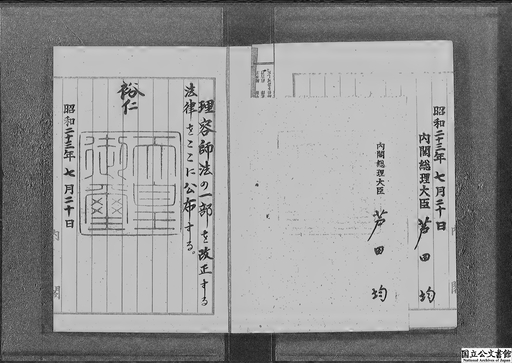 昭和二十三年七月二十日
内閣総理大臣 芦田均
内閣総理大臣 芦田均
理容師法の一部を改正する
法律をここに公布する。
裕仁
天皇御璽
昭和二十三年七月二十日
国立公文書館
National Archives of Japan